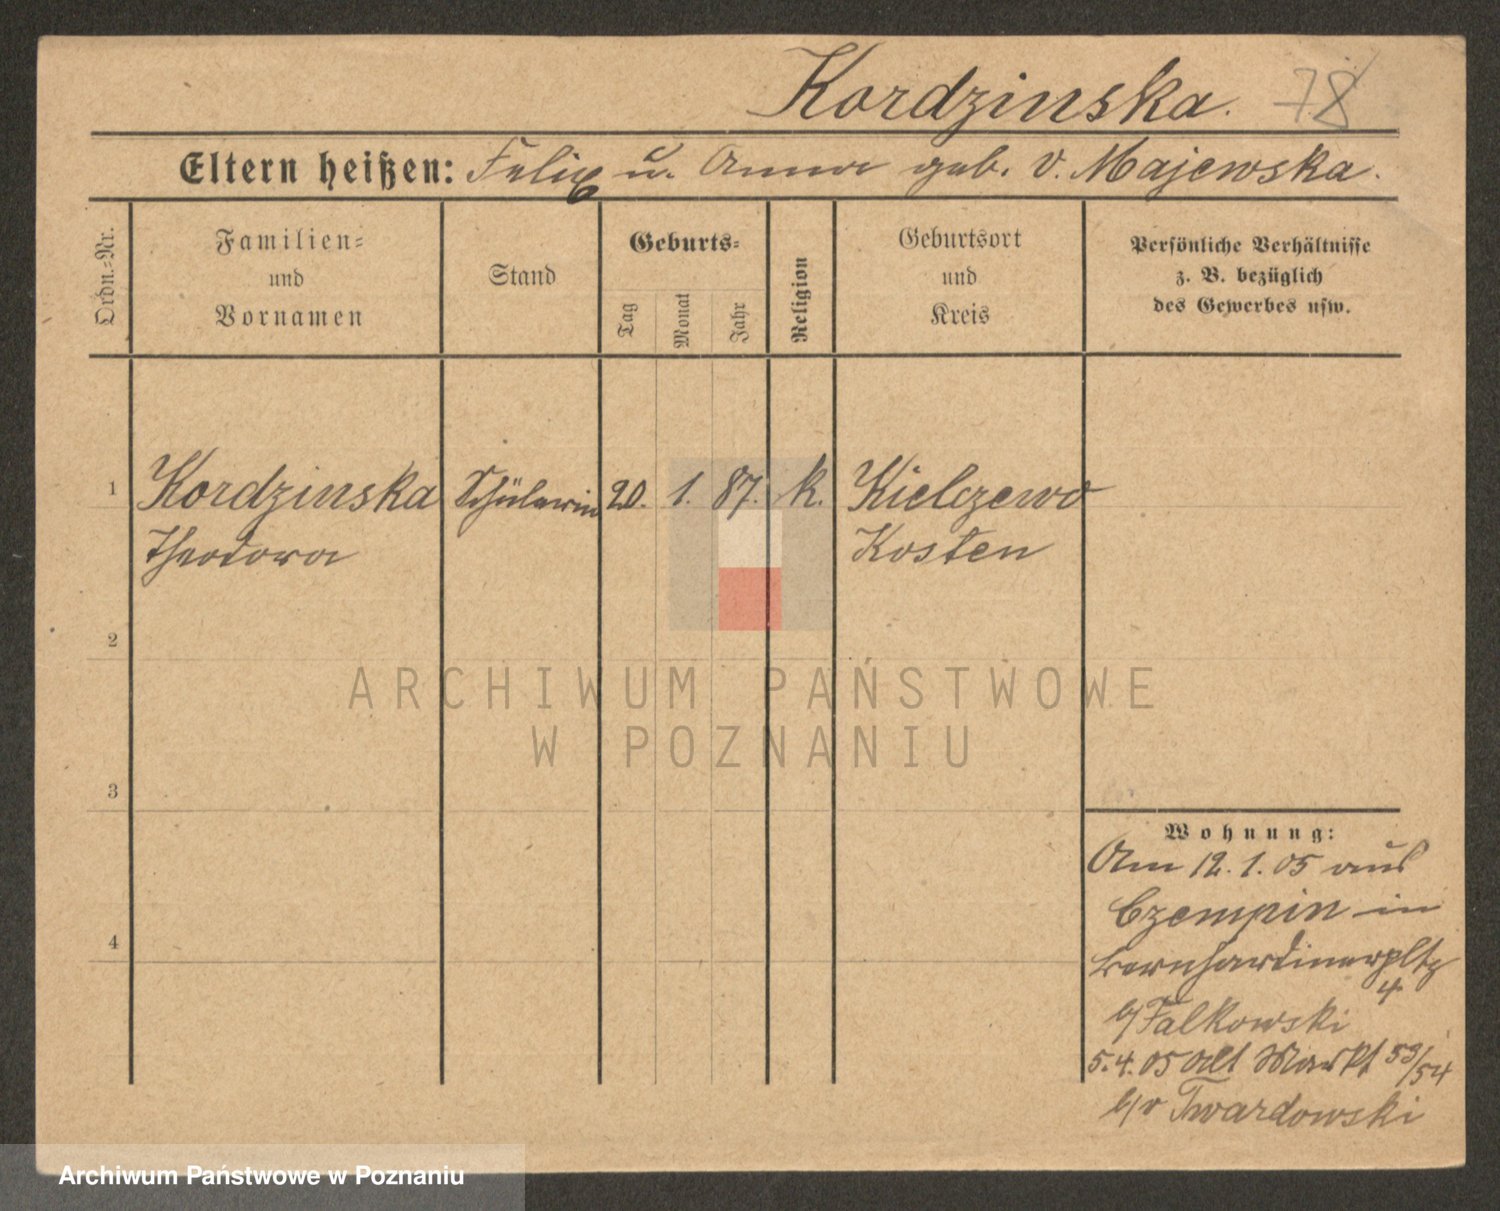 Kordzinska. 78
Eltern heißen: Felix u. Anna geb. v. Majewska.
Ordn.-Nr.
Familien-
und
Vornamen
Stand
Geburts-
Tag
Monat
Jahr
Religion
Geburtsort
und
Kreis
Persönliche Verhältnisse
z. B. bezüglich
des Gewerbes usw.
1 Kordzinska Schülerin 20. 1. 87. k. Kielczewo
Theodora Kosten
2
3
4
Wohnung:
Am 12.1.05 aus
Czempin in
Bernhardinerpltz
4.
b/ Falkowski
5.4.05 Alt Markt 53/54
b/v Twardowski
ARCHIWUM PAŃSTWOWE
W POZNANIU
Archiwum Państwowe w Poznaniu